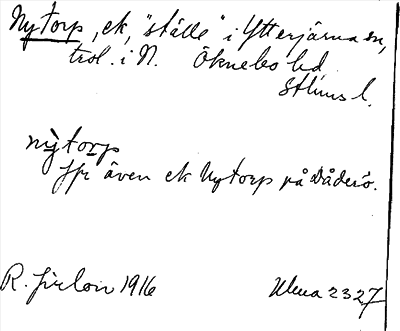 Nytorp, ek, "ställe" i Ytterjärna sn,
trol. i N. Öknebo hd
Sthlms l.
nỳtorp
Jfr även ek Nytorp på Däderö.
R. Jirlow 1916
Ulma 2327